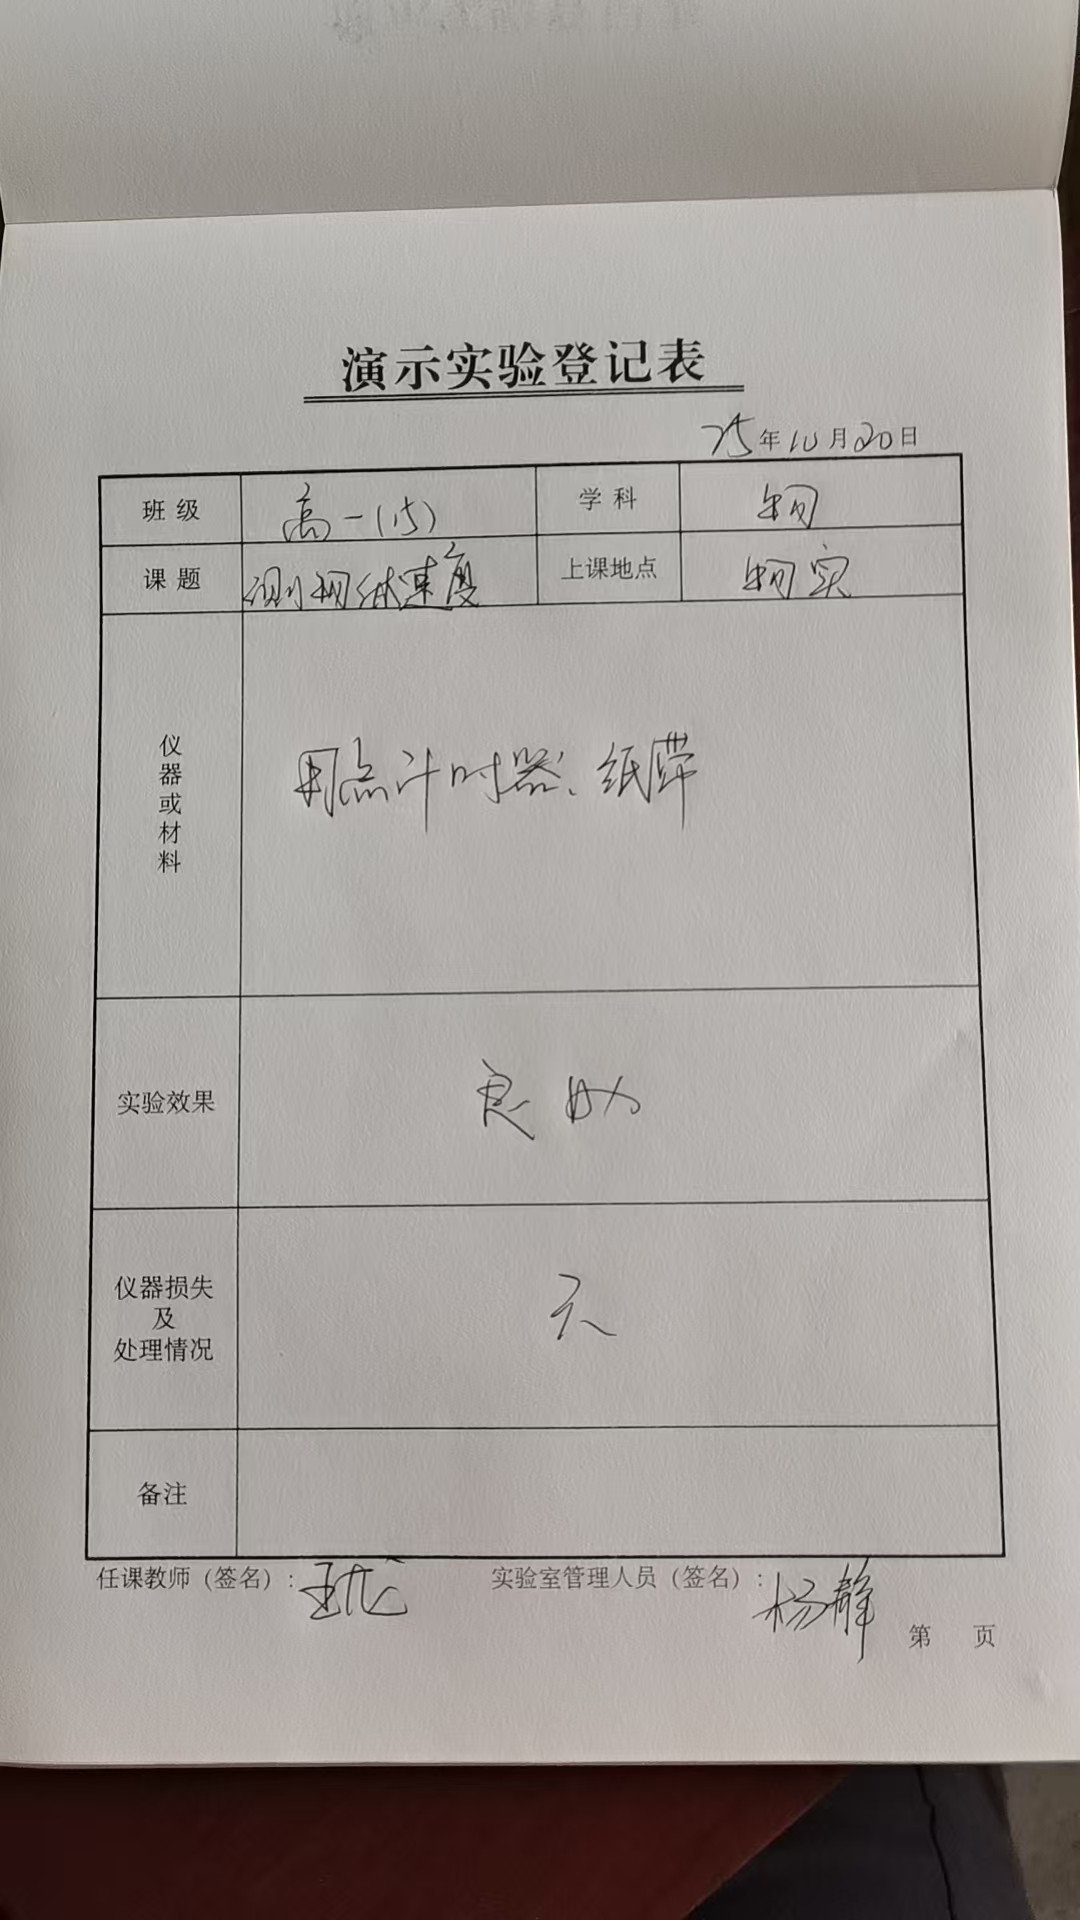 演示实验登记表
25年10月20日
班级 高一(15) 学科 物
课题 测物体速度 上课地点 物实
仪器或材料 打点计时器、纸带
实验效果 良好
仪器损失
及
处理情况 无
备注
任课教师（签名）： 王龙 实验室管理人员（签名）： 杨静
第 页